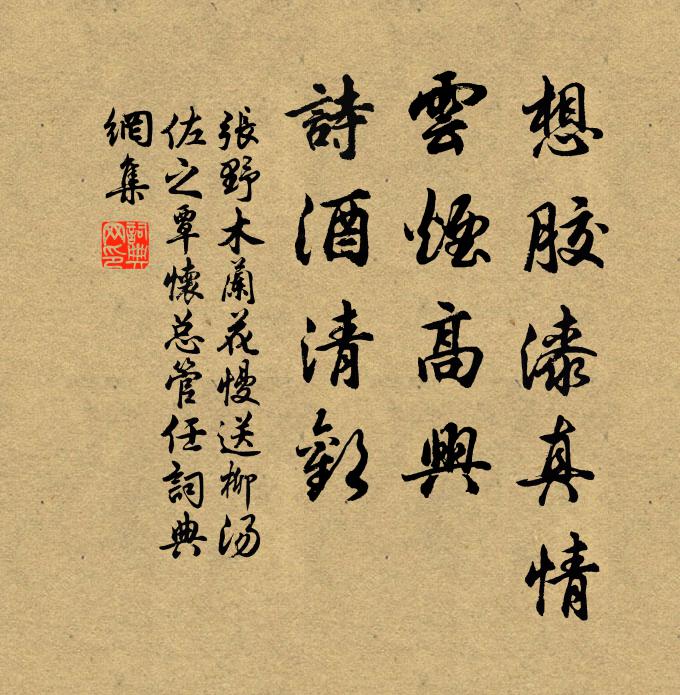 想膠漆真情
雲煙高興
詩酒清歡
張野木蘭花慢送柳湯
佐之覃懷总管任詞典
網集
詞典
网印